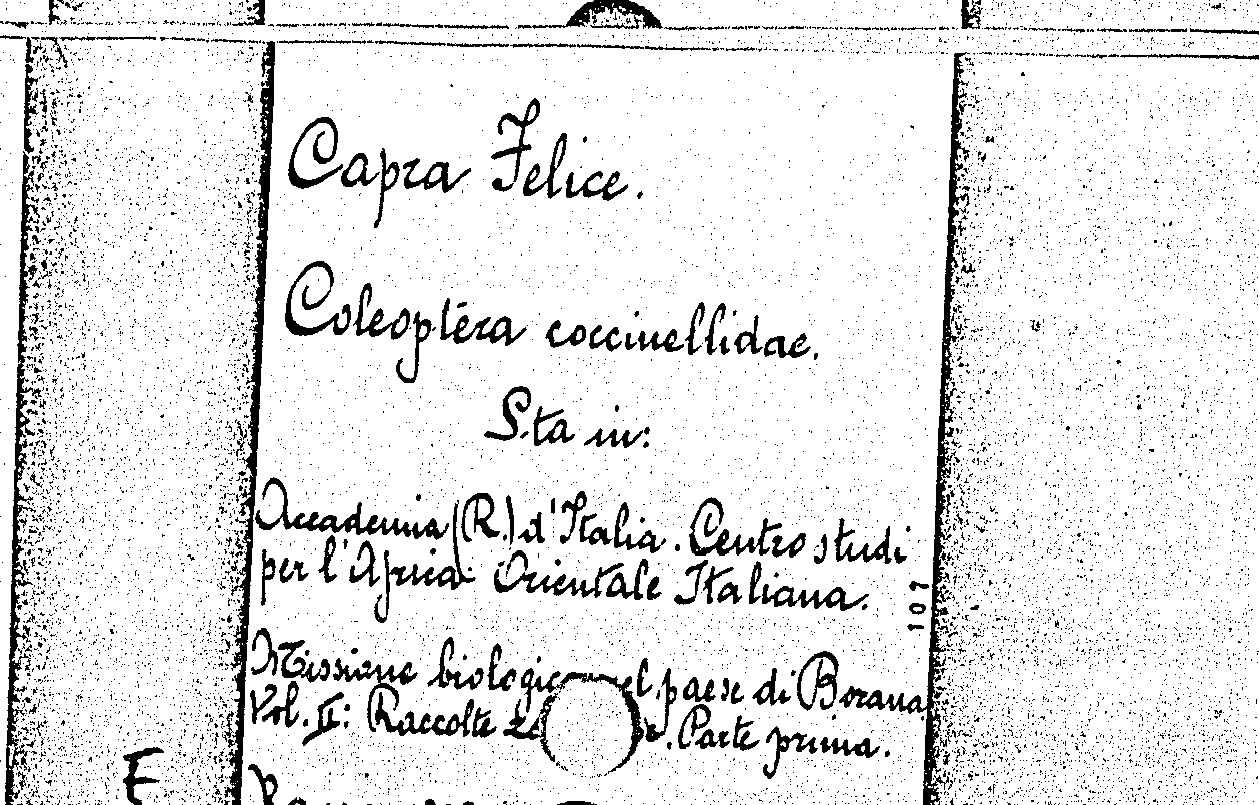 Capra Felice.
Coleoptera coccinellidae.
Sta in:
Accademia (R.) d'Italia. Centro studi
per l'Africa Orientale Italiana.
101
Missione biologica nel paese di Borana.
Vol. II: Raccolte . Parte prima.
E